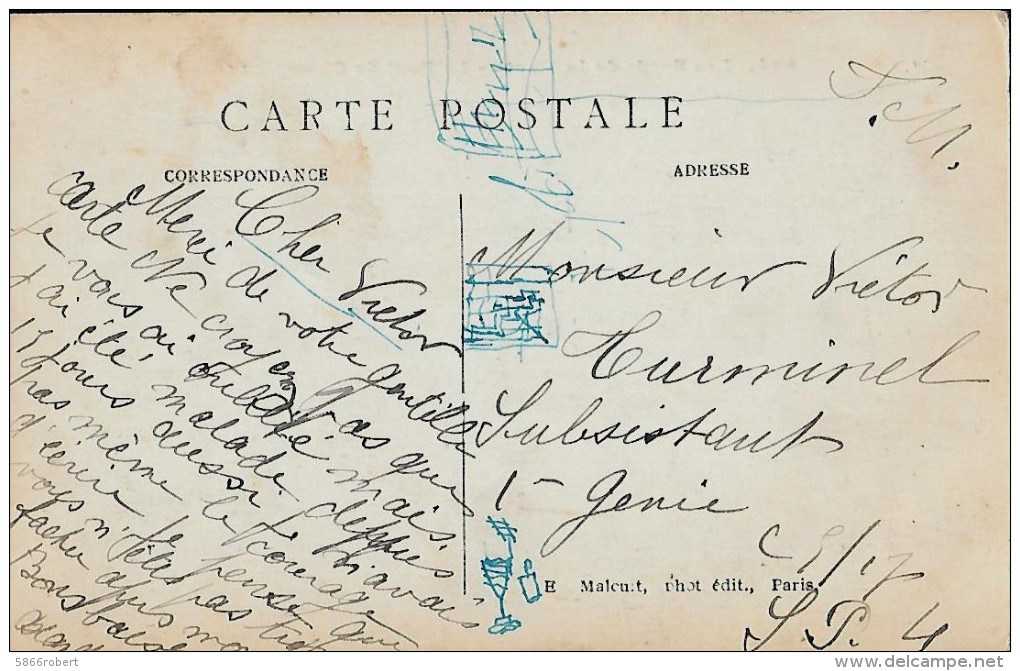 CARTE POSTALE
F.M.
CORRESPONDANCE
ADRESSE
Cher Victor
Merci de votre gentille
carte Ne croyez pas que
je vous ai oublié mais
j'ai été malade depuis
15 jours aussi n'avais
pas même le courage
d'écrire je pense que
vous n'êtes pas
facher
Bons
Monsieur Victor
Hurminel
Subsistant
1- Genie
C 5/17
S.P. 4
E Malcuit, phot édit., Paris
5866robert
delcampe.net